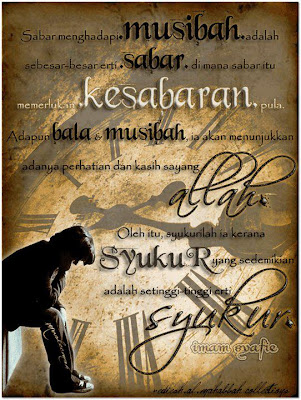 Sabar menghadapi .musibah. adalah
sebesar-besar erti .sabar. di mana sabar itu
memerlukan .kesabaran. pula.
Adapun bala & musibah, ia akan menunjukkan
adanya perhatian dan kasih sayang
allah.
Oleh itu, syukurilah ia kerana
SyukuR yang sedemikian
adalah setinggi-tinggi erti
syukur.
imam syafie